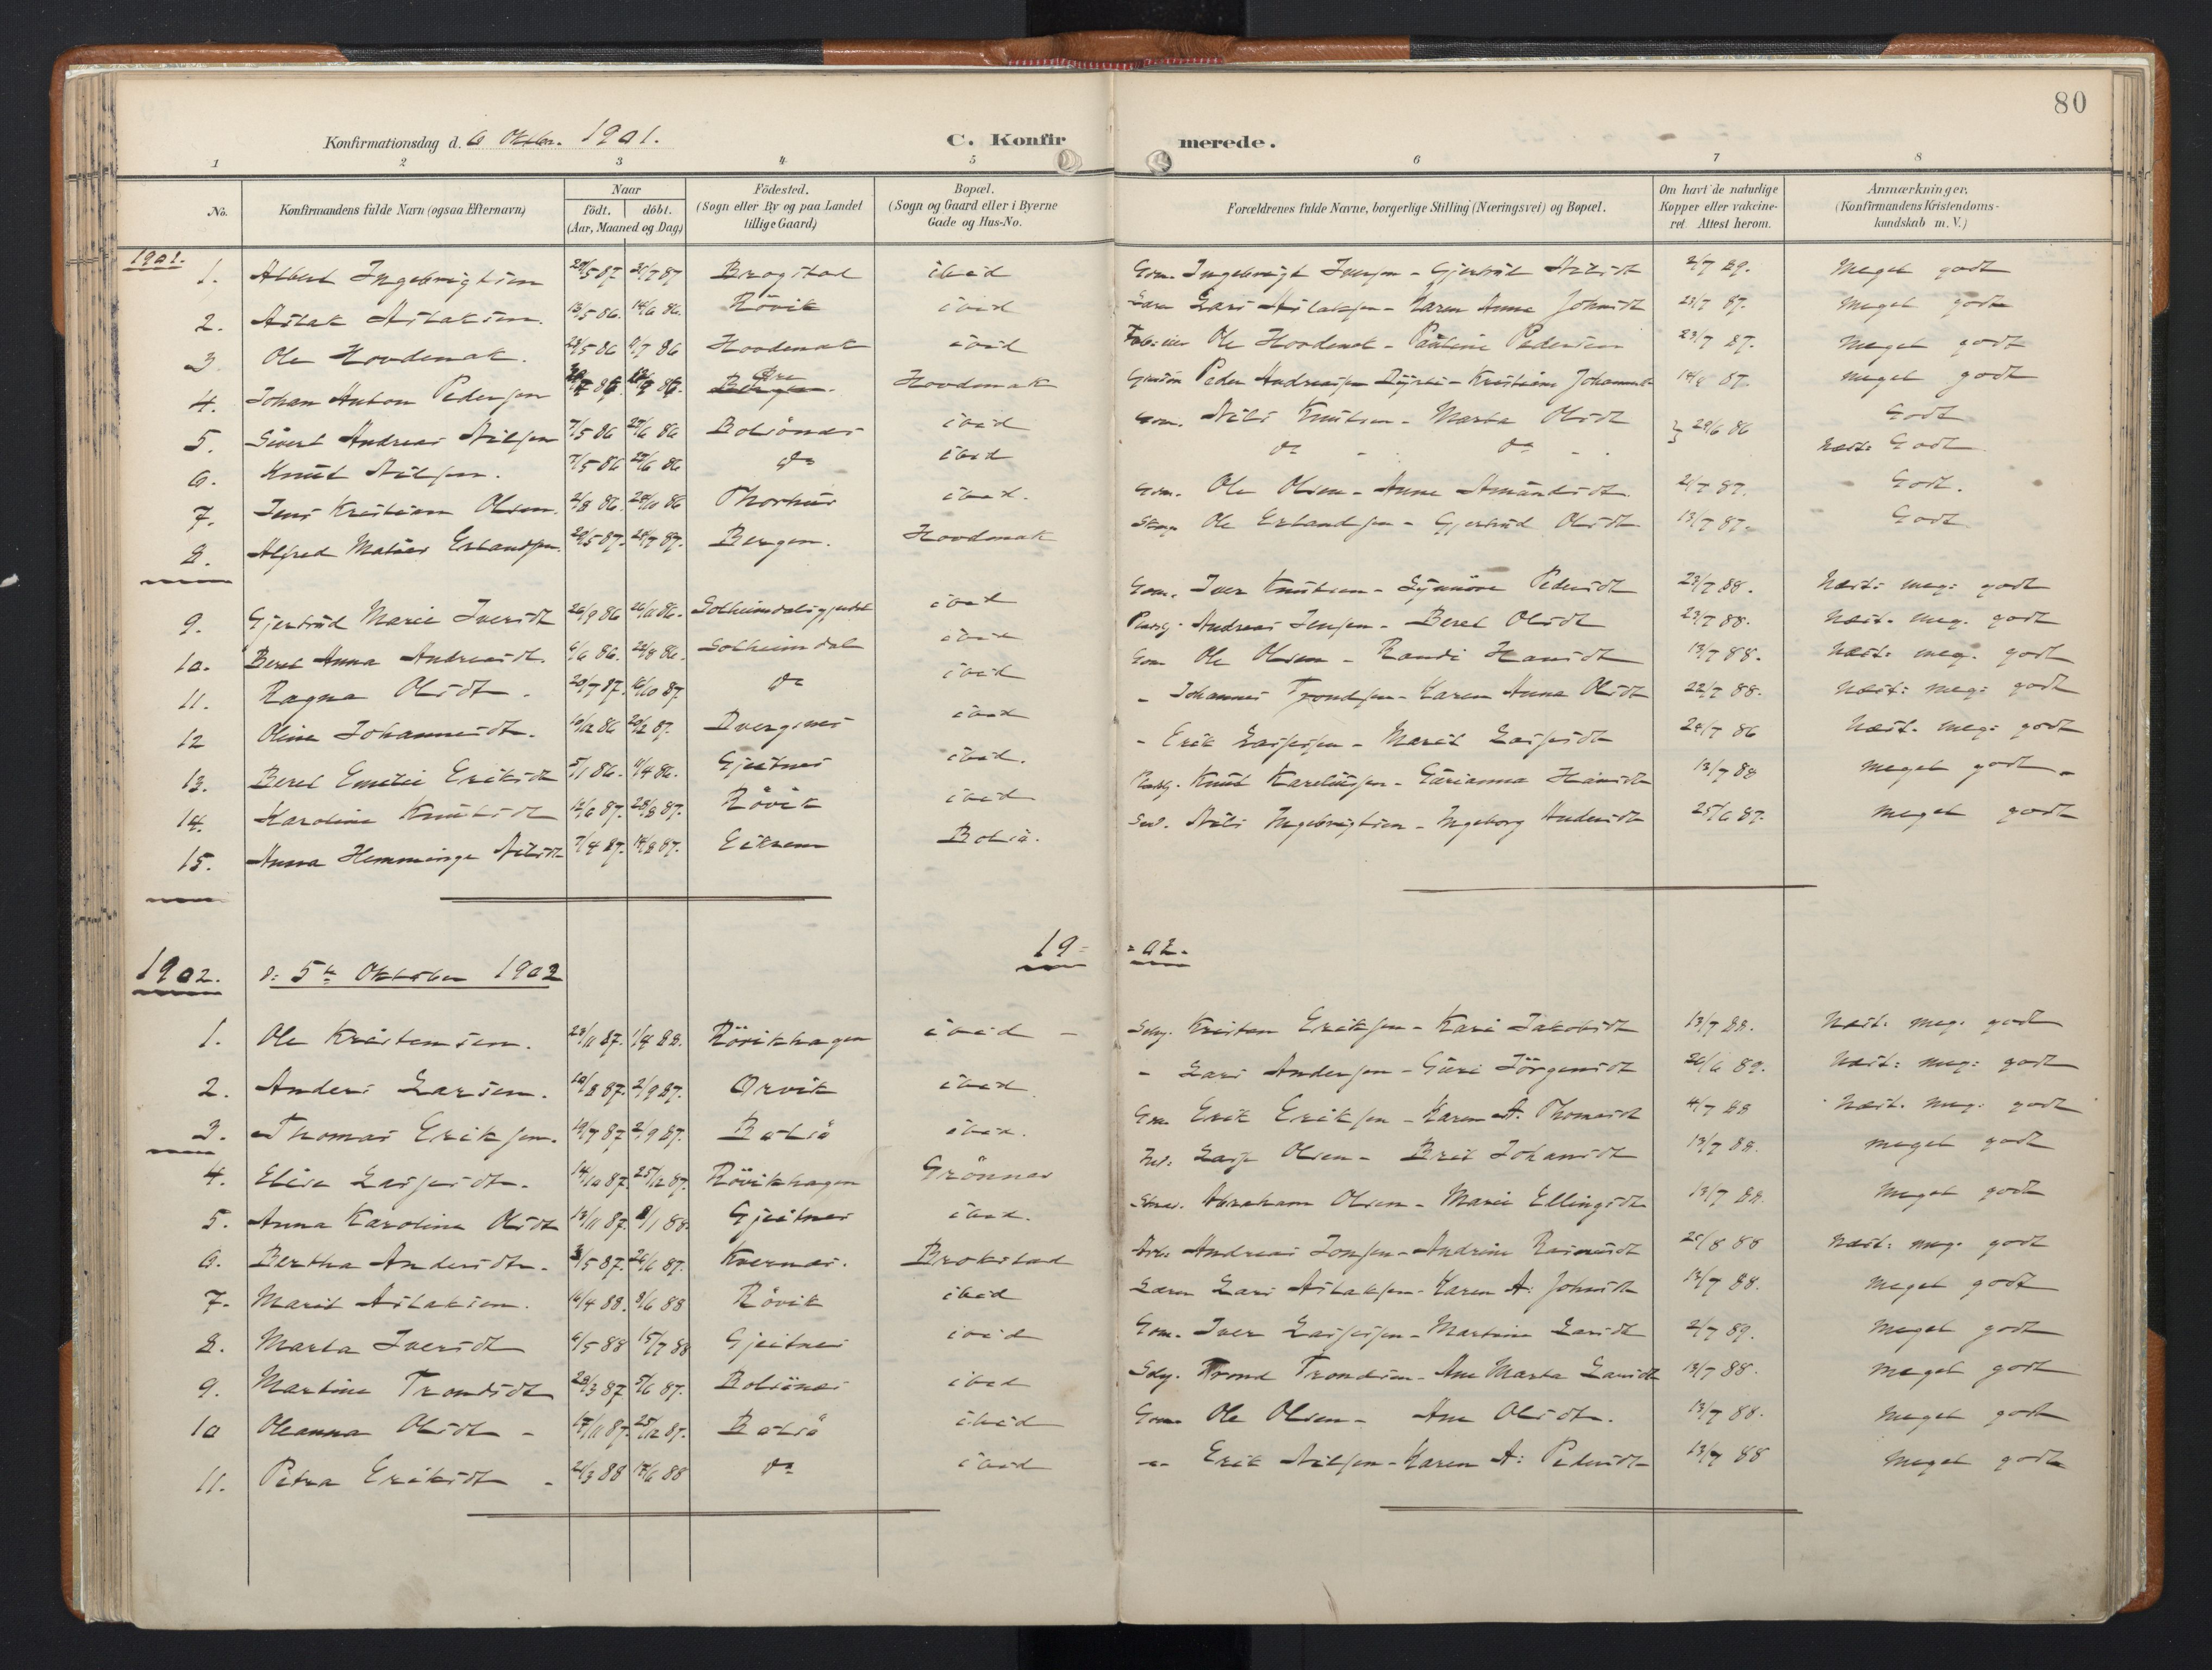 80
Konfirmationsdag d. 6 Oktbr. 1901.
C. Konfirmerede.
1 2 3 4 5 6 7 8
No.
Konfirmandens fulde Navn (ogsaa Efternavn)
Naar
födt. döbt.
(Aar, Maaned og Dag)
Födested.
(Sogn eller By og paa Landet
tillige Gaard)
Bopæl.
(Sogn og Gaard eller i Byerne
Gade og Hus-No.
Forældrenes fulde Navne, borgerlige Stilling (Næringsvei) og Bopæl.
Om havt de naturlige
Kopper eller vakcine-
ret Attest herom.
Anmærkninger.
(Konfirmandens Kristendoms-
kundskab m. V.)
1901.
1. Albert Ingebrigtsen 5 87 7 87 Brogstad ibid Gm. Ingebrigt Iversen - Gjertrüd Nilsdt 2/7 89. Meget godt
2. Aslak Aslaksen. 13/5 86. 14/6 86. Rövik ibid Lars Aslaksen - Karen Anne Johnsdt 23/7 87. Meget godt
3 Ole Hovdenak. 5 86 7 86 Hovdenak ibid Ole Hovdenak - Pauline Pedersen 23/7 87. Meget godt
4. Johan Anton Pedersen Öre Bergen. Hovdenak Peder Andreassen - Kristiane Johannesd 14/8 87. Meget godt
5. Sivert Andreas Nilsen 7/5 86 27/6 86 Bolsönes ibid Gm. Nils Knutsen - Marta Olsdt } 29/6 86 Godt
6. Knut Nilsen. 7/5 86 27/6 86 do ibid do - do - Næst: Godt
7. Jens Kristian Olsen. 2/8 86. 24/10 86 Thorhus ibid. Gm. Ole Olsen - Anne Amundsdt 2/7 87. Godt.
8. Alfred Matias Erlandsen. 29/5 87. 24/7 87. Bergen. Hovdenak Ole Erlandsen - Gjertrud Olsdt 13/7 87. Godt
9. Gjertrüd Marie Iversdt 26/9 86 26/11 86. Solheimdalsgjerdet ibid Gm. Iver Knutsen - Synnöve Pedersdt 23/7 88. Næst: meg: godt
10. Beret Anna Andreasdt. 6/6 86. 22/8 86. Solheimdal ibid Andreas Jensen - Beret Olsdt 23/7 88. Næst. meg. godt
11. Ragna Olsdt. 20/7 87. 16/10 87. do ibid Gm Ole Olsen - Randi Hansdt 13/7 88. Næst: meg. godt
12 Oline Johannesdt. 10/12 86 20/2 87. Dvergsnes ibid - Johannes Trondsen - Karen Anna Olsdt 22/7 88. Næst: meg: godt
13. Beret Emelie Eriksdt 5/1 86. 11/4 86. Gjeitnes ibid. - Erik Lassesen - Marit Lassesdt 24/7 86 Næst. meg: godt
14. Karoline Knutsdt 12/6 87. 28/8 87. Rövik ibid Knut Kareliussen - Gurianna Hansdt 13/7 88 Meget godt
15. Anna Hemminge Nilsdt 7/4 87. 14/8 87. Eikrem Bolsö. Nils Ingebrigtsen - Ingeborg Andersdt 25/6 87. Meget godt
19- = 02.
1902. d: 5te Oktober 1902
1. Ole Kristensen. 23/11 87. 1/4 88. Rövikhagen ibid - Selvej. Kristen Eriksen - Kari Jakobsdt 13/7 88. Næst. meg. godt
2. Anders Larsen. 10/8 87. 2/9 87. Orvik ibid - Lars Andersen - Guri Jörgensdt 26/6 89. Næst: meg: godt
3. Thomas Eriksen. 19/7 87 2/9 87. Bolsö ibid. Gm Erik Eriksen - Karen A. Thomasdt 4/7 88 Næst. meg. godt
4. Elise Lassesdt. 14/10 87. 25/12 87. Rövikhagen Grönnes Lasse Olsen - Brit Johansdt 13/7 88. Meget godt
5. Anna Karoline Olsdt 13/11 87. 8/1 88. Gjeitnes ibid. Abraham Olsen - Marie Ellingsdt 13/7 88. Meget godt
6. Bertha Andersdtr. 3/5 87. 26/6 87. Kvernes. Brokstad Arb. Andreas Jonsen - Andrine Rasmusdt 25/8 88 Næst: meg. godt
7. Marit Aslaksen. 14/4 88. 3/6 88 Rövik ibid Lars Aslaksen - Karen A. Johnsdt 13/7 88. Meget godt
8. Marta Iversdt 6/5 88 15/7 88 Gjeitnes ibid Gm. Iver Lassesen - Martine Larsdt 2/7 89. Meget godt
9. Martine Trondsdt 23/3 87 5/6 87. Bolsönes ibid Trond Trondsen - Ane Marta Larsdt 13/7 88. Meget godt
10 Oleanna Olsdt - 17/11 87. 25/12 87. Bolsö ibid Gm. Ole Olsen - Ane Olsdt. 13/7 88. Meget godt
11. Petra Eriksdt - 21/3 88 17/6 88 do ibid - Erik Nilsen - Karen A: Pedersdt 13/7 88 Meget godt